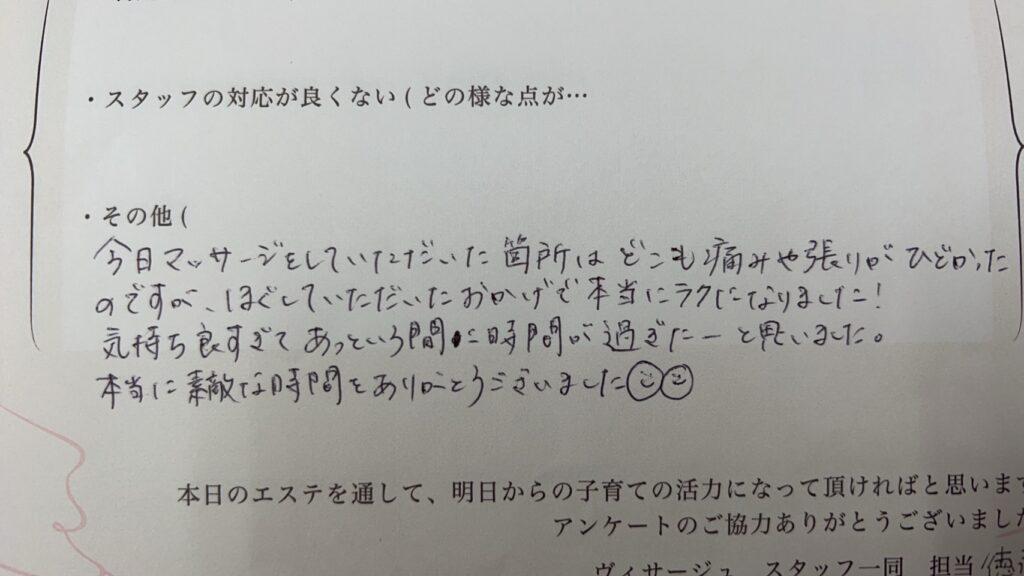 ・スタッフの対応が良くない ( どの様な点が…
・その他 (
今日マッサージをしていただいた箇所はどこも痛みや張りがひどかった
のですが、ほぐしていただいたおかげで本当にラクになりました！
気持ち良すぎてあっという間に時間が過ぎたーと思いました。
本当に素敵な時間をありがとうございました
本日のエステを通して、明日からの子育ての活力になって頂ければと思います
アンケートのご協力ありがとうございました
ヴィサージュ スタッフ一同 担当